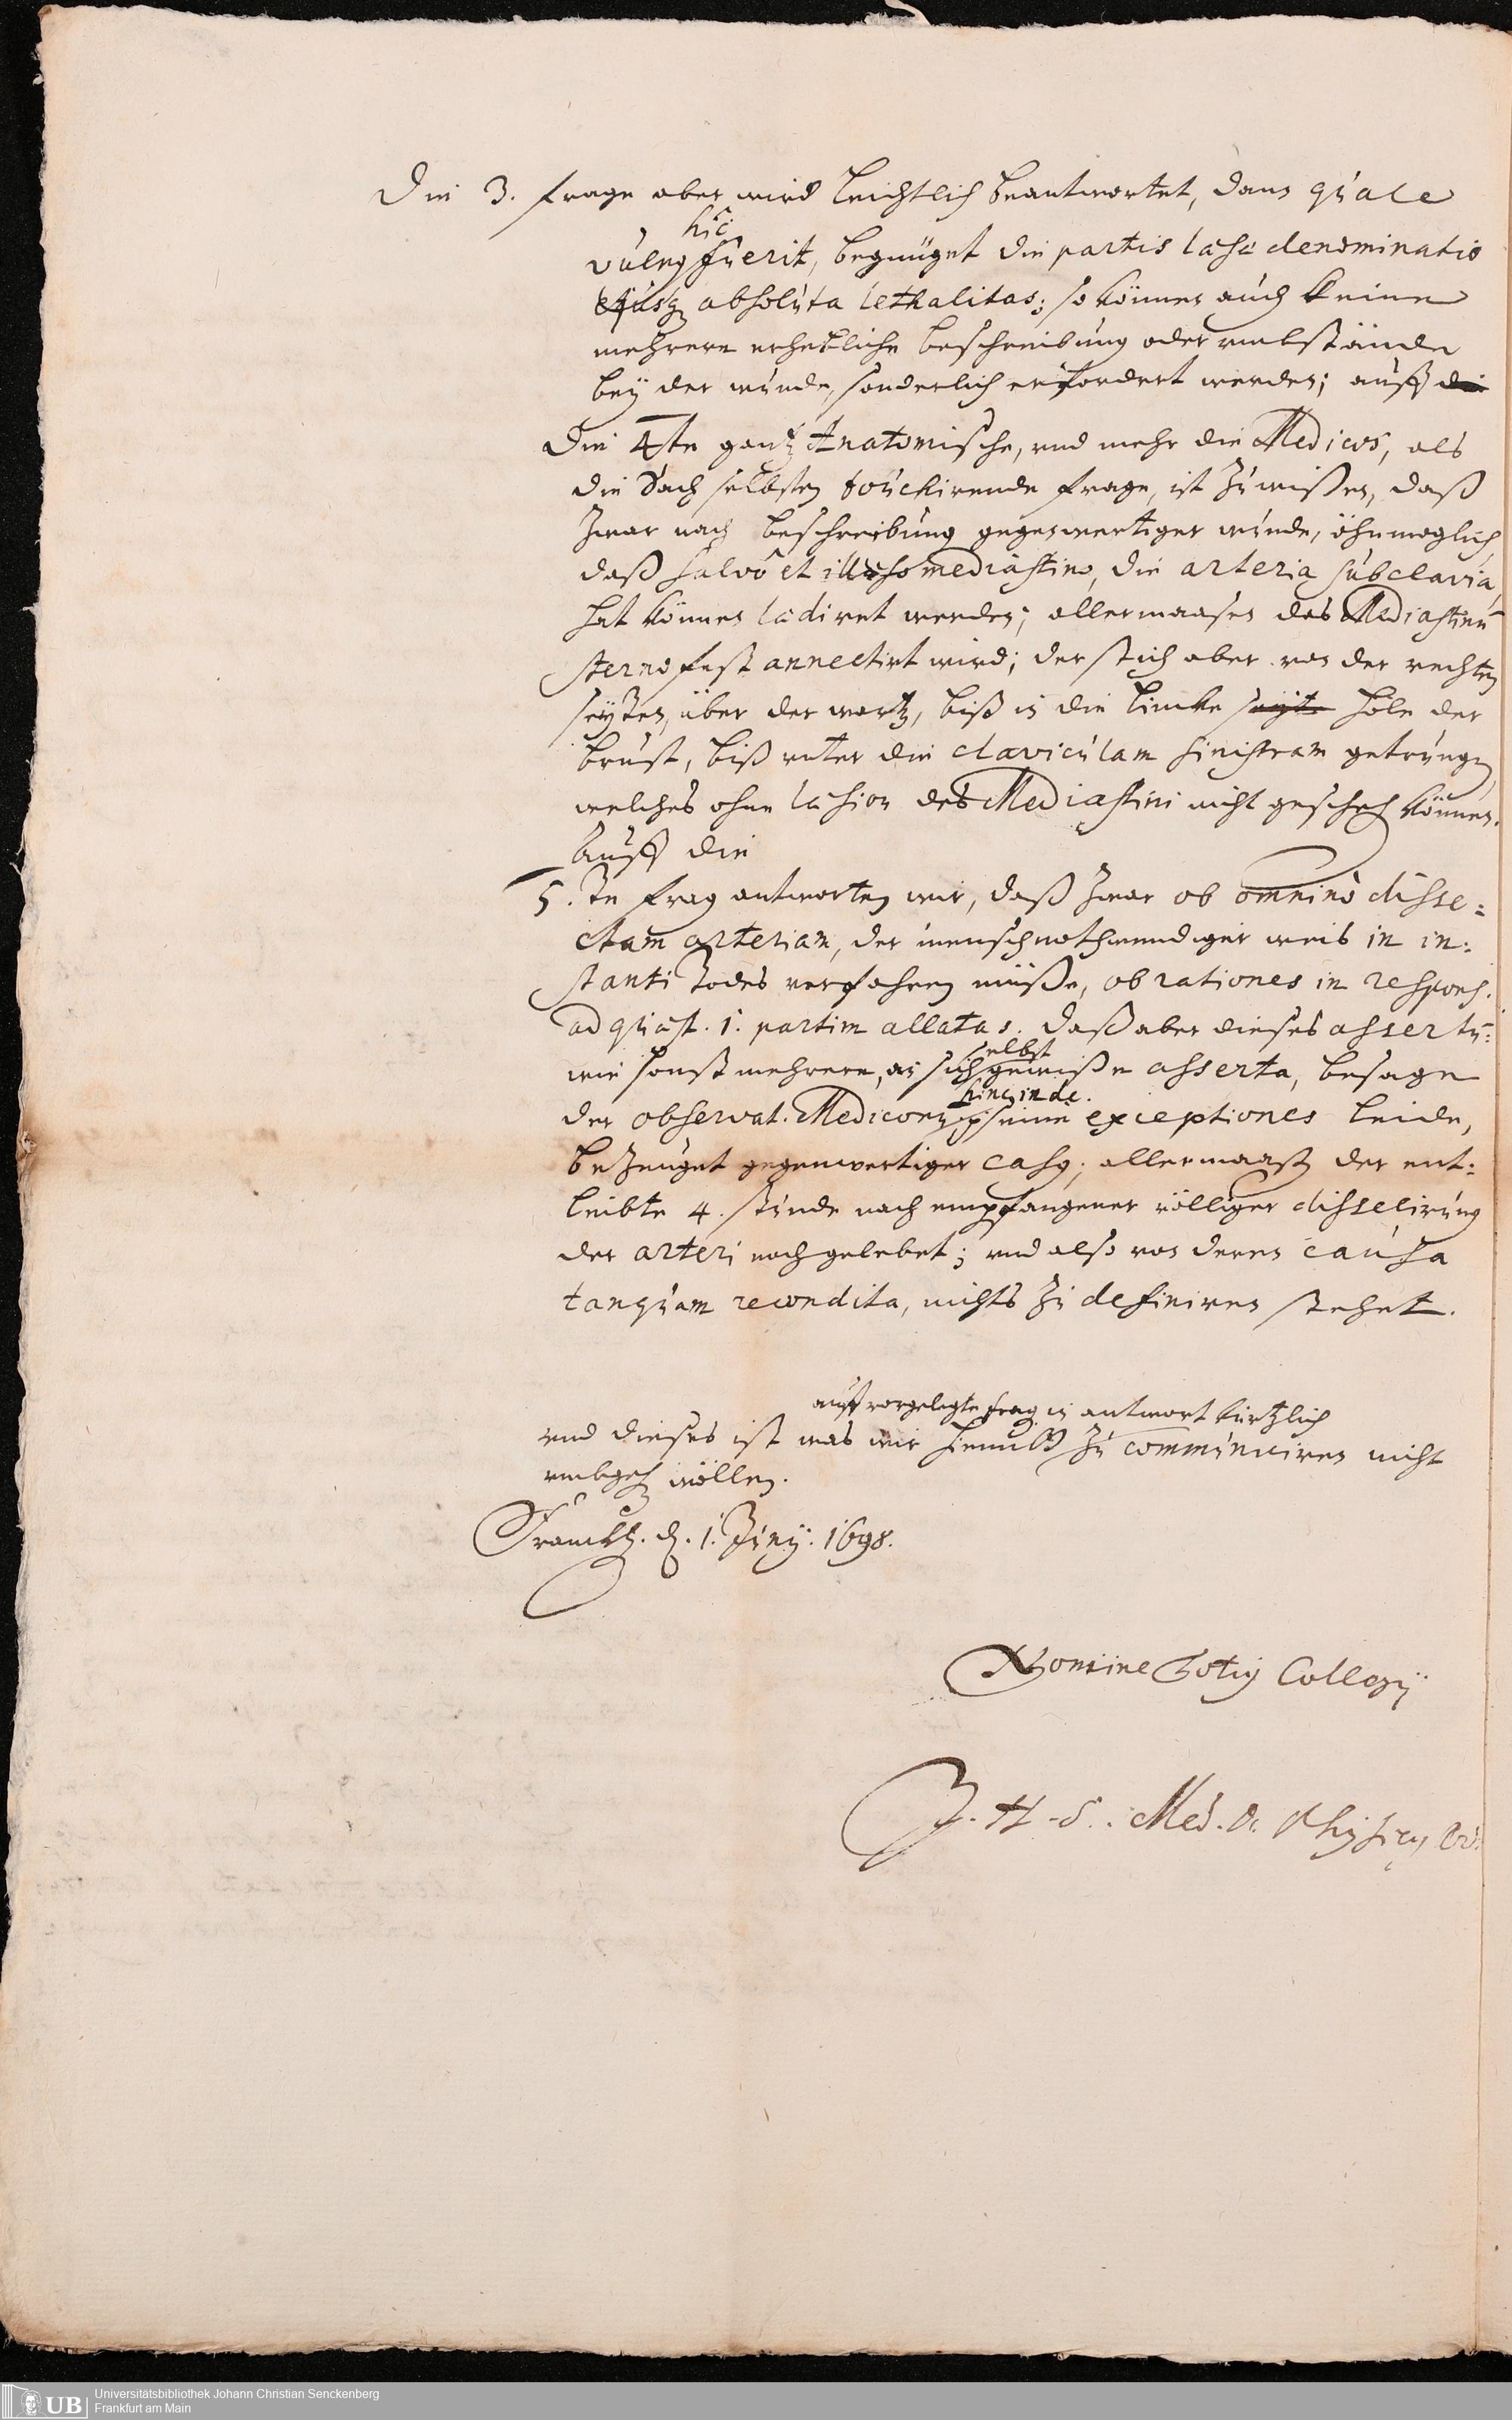 Die 3. Frage aber wird leichtlich beantwortet, dann quale
hîc
vulnus fuerit, begnüget die partis laesae denominatio
ejusque absoluta lethalitas; so können auch keine
mehrere erhebliche beschreibung oder umbstände
bey der wunde, sonderlich erfordert werden; auff die
Die 4te gantz Anatomische, und mehr die Medicos, als
die Sach selbsten touchirende Frage, ist zu wißen, daß
zwar nach beschreibung gegenwertiger wunde, ohnmöglich
daß salvô et illaeso mediastino, die arteria subclavia,
hat können laediret werden; allermaasen das Mediastinū
sterno fest annectirt wird; der stich aber von der rechten
seyten, über der wartz, biß in die lincke seyte höle der
brust, biß unter die claviculam sinistram getrungen,
welches ohne laesion des Mediastini nicht gescheh können.
Auff die
5. te Frag antworten wir, daß zwar ob omninò disse=
ctam arteriam, der mensch nothwendiger weis in in=
stanti Todes verfahren müße, ob rationes in respons.
ad quaest. 1. partim allatas. Daß aber dieses assertū=
selbst
wie sonst mehrere, an sich gewiße asserta, besage
hinc inde.
der observat. Medicorum seine exceptiones leide,
bezeuget gegenwertiger casus; allermaasen der ent=
leibte 4. stunde nach empfangener völliger dissecirung
der arteri noch gelebet; und also von deren causa
tanquam recondita, nichts zu definiren stehet.
auff vorgelegte Frag in antwort kürtzlich
und dieses ist was wir hiemitt zu communiciren nicht
umbgeh wöllen.
Franckf. d. 1. Juny. 1698.
Nomine Totius Collegij
J. H. S. Med. D. Physicus Or.
UB Universitätsbibliothek Johann Christian Senckenberg
Frankfurt am Main